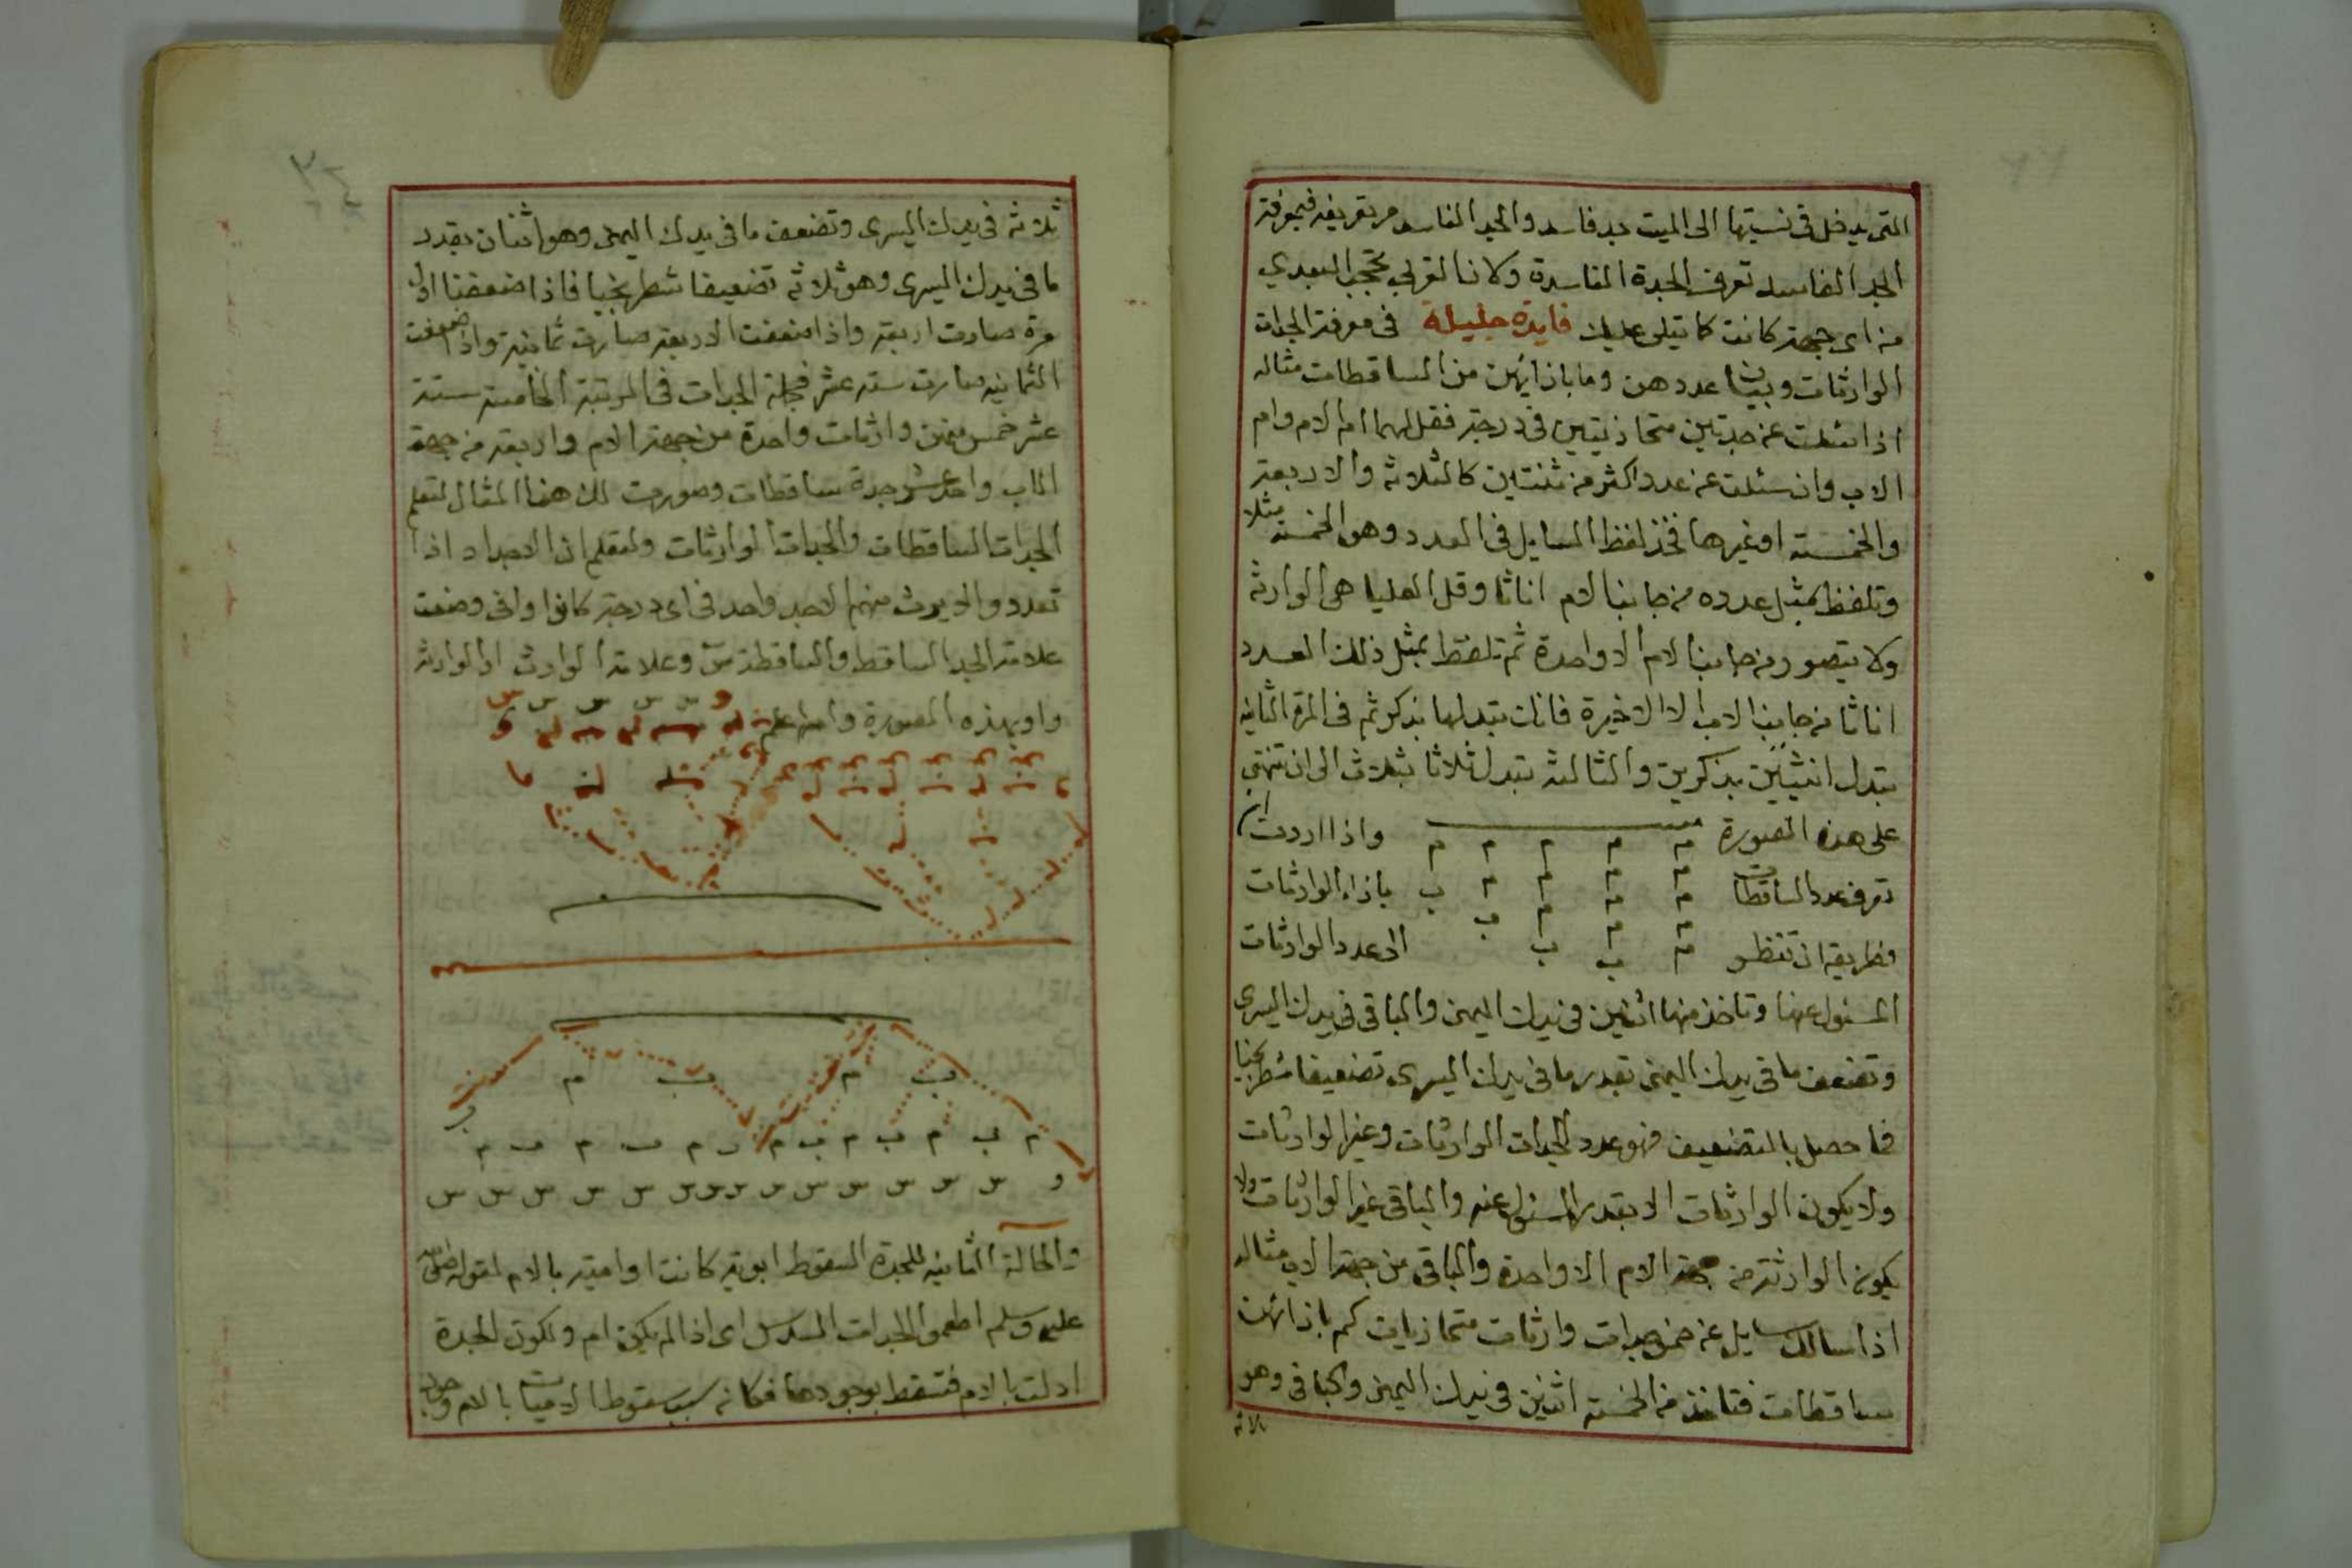 التى يدخل فى نسبتها الى الميت جد فاسد والجد الفاسد مر تعريفه فبمعرفة
الجد الفاسد تعرف الجدة الفاسدة وكانا لقربى تحجب البعدي
من اى جهة كانت كا تيلى عليك فايدة جليلة فى معرفة الجدات
الوارثات وبيان عددهن وما بازايهن من الساقطات مثاله
اذا سئلت عن جدتين متحاذيتين فى درجة فقل لهما ام الام وام
الاب وان سئلت عن عدد اكثر من ثنتين كالثلاثه والاربعة
والخمسته او غيرها فخذ لفظ السايل فى العدد وهو الخمسة مثلا
وتلفظ بمثل عدده من جانب الام اناثا وقل العليا هى الوارثة
ولا يتصور من جانب الام الا واحدة ثم تلفظ بمثل ذلك العدد
اناثا من جانب الاب الا الاخيرة فانك تبدلها بذكر ثم فى المرة الثانيه
تبدل انثيين بذكرين والثالثة تبدل ثلاثا بثلاث الى ان تنتهى
على هذه الصورة م م م م م واذا اردت ان
تعرف عدد الساقطات م م م م ب بازاء الوارثات
م م م ب
فطريقه ان تنظر م ب ب الى عدد الوارثات
المسئول عنها وتاخذ منها اثنين فى يدك اليمنى والباقى فى يدك اليسرى
وتضعف ما فى يدك اليمنى بقدر ما فى يدك اليسرى تضعيفا شطرنجيا
فما حصل بالتضعيف فهو عدد الجدات الوارثات وغير الوارثات
ولا يكون الوارثات الا بقدر المسئول عنه والباقى غير الوارثات ولا
يكون الوارثة من جهة الام الا واحدة والباقى من جهة الاب مثاله
اذا سالك سايل عن خمس جدات وارثات متحاذيات كم بازائهن
ساقطات فتاخذ من الخمسته اثنين فى يدك اليمنى والباقى وهو
ثلاثه
ثلاثة فى يدك اليسرى وتضعف ما فى يدك اليمنى وهو اثنان بقدر
ما فى يدك اليسرى وهو ثلاثه تضعيفا شطرنجيا فاذا ضعفنا اول
مرة صارت اربعة واذا ضعفت الاربعة صارت ثمانية واذا ضعفت
الثمانيه صارت سته عشر فجملة الجدات فى المرتبة الخامسة ستة
عشر خمس منهن وارثات واحدة من جهة الام واربعة من جهة
الاب واحد عشر جدة ساقطات وصورت لك هذا المثال لتعلم
الجدات الساقطات والجدات الوارثات ولتعلم ان الاجداد اذا
تعددوا لا يرث منهم الا جد واحد فى اى درجة كانوا وانى وضعت
علامة الجد الساقط والساقطة س وعلامة الوارث او الوارثة
واو بهذه الصورة والله اعلم
ب م ب م
م ب م ب م ب م
و س س س س س س س س س س س س س
والحالة الثانيه للجدة السقوط ابوية كانت او امية بالام لقوله صلى الله
عليه وسلم اطعموا الجدات السدس اى اذا لم يكن ام ولكون الجدة
ادلت بالام فتسقط بوجودها فكانه سبب سقوط الاميات بالام